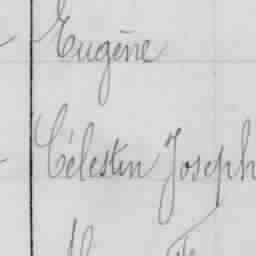 Eugène
Célestin Joseph